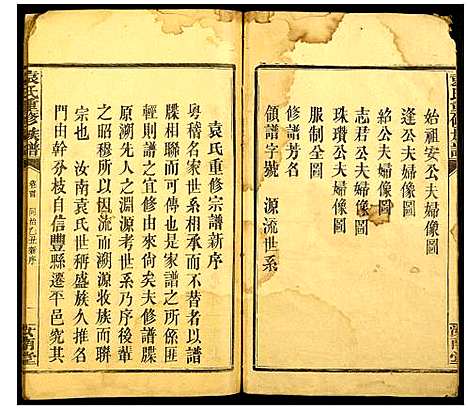 袁氏重修族譜
汝南堂
始祖安公夫婦像圖
逢公夫婦像圖
紹公夫婦像圖
志君公夫婦像圖
珠瓚公夫婦像圖
服制全圖
修譜芳名
領譜字號 源流世系
袁氏重修宗譜新序
粵稽名家世系相承而不替者以譜
牒相聯而可傳也是家譜之所係匪
輕則譜之宜修由來尙矣夫修譜牒
原溯先人之淵源考世系乃序後輩
之昭穆所以因流而溯源收族而聯
宗也 汝南袁氏世稱盛族久推名
門由幹分枝自信豐縣遷平邑究其
袁氏重修族譜
卷首
同治乙丑新序
一
汝南堂